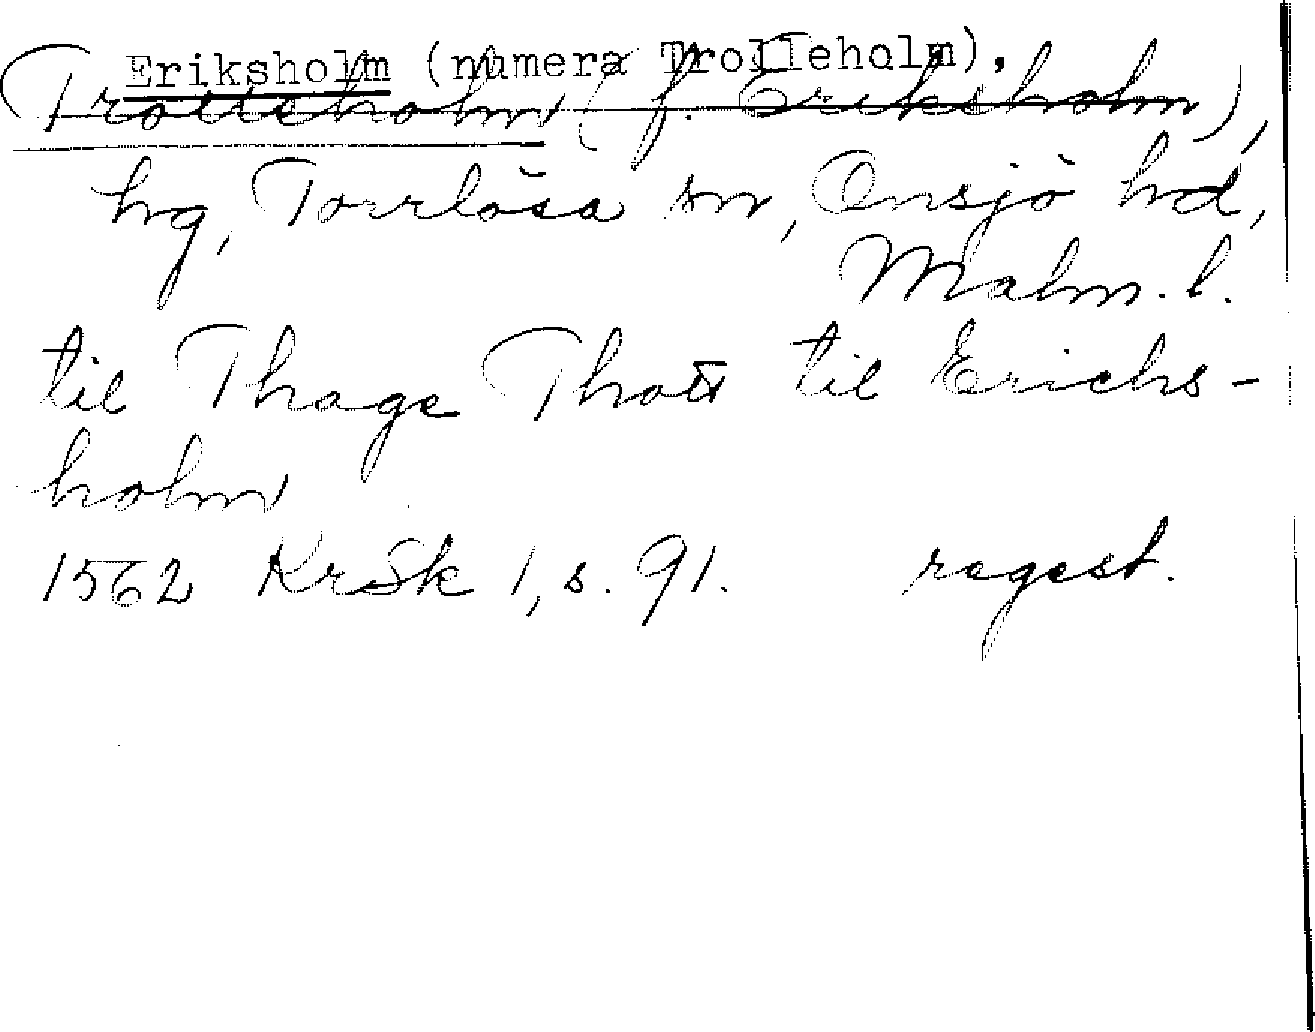 Eriksholm (numera Trolleholm),
Trolleholm (f. Eriksholm),
hg, Torrlösa sn, Onsjö hd,
Malm. l.
til Thage Thott til Erichs-
holm
1562 KrSk 1, s. 91. regest.